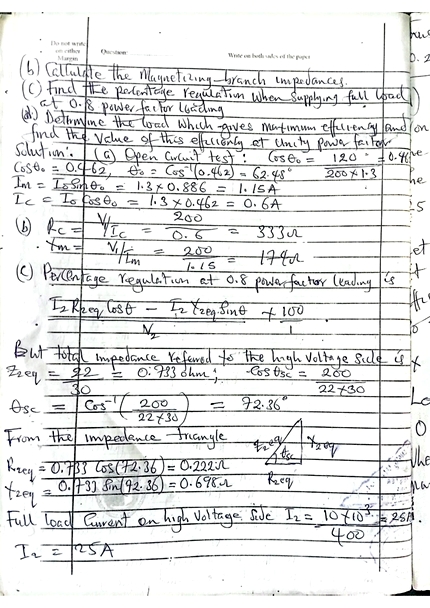 Do not write
on either
Margin
Question:
Write on both sides of the paper
(b) Calculate the Magnetizing-branch impedances.
(c) find the percentage regulation when supplying full load
at 0.8 power factor leading
(d) Determine the load which gives maximum efficiency and
find the value of this efficiency at unity power factor
Solution: (a) Open Circuit test: Cosθo = 120 / 200×1.3 = 0.46
Cosθo = 0.462, θo = Cos⁻¹(0.462) = 62.48°
Im = Io Sinθo = 1.3 × 0.886 = 1.15A
Ic = Io Cosθo = 1.3 × 0.462 = 0.6A
(b) Rc = V1/Ic = 200/0.6 = 333Ω
Xm = V1/Im = 200/1.15 = 174Ω
(c) Percentage regulation at 0.8 power factor leading is
I2 R2eq Cosθ − I2 X2eq Sinθ / V2 × 100/1
But total impedance referred to the high voltage side is
Z2eq = 22/30 = 0.733 ohm; Cosθsc = 200 / 22×30
θsc = Cos⁻¹(200 / 22×30) = 72.36°
From the impedance triangle
Z2eq X2eq
θsc
R2eq
R2eq = 0.733 Cos(72.36) = 0.222Ω
X2eq = 0.733 Sin(72.36) = 0.698Ω
Full load Current on high Voltage Side I2 = 10×10³ / 400 = 25A.
I2 = 25A